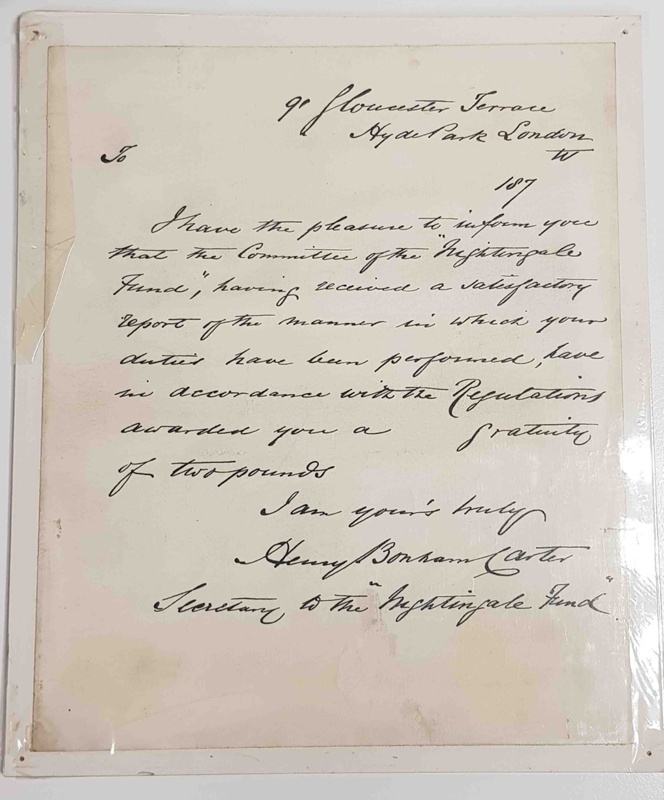 91 Gloucester Terrace
Hyde Park London
W
To
187
I have the pleasure to inform you
that the Committee of the "Nightingale
Fund", having received a satisfactory
report of the manner in which your
duties have been performed, have
in accordance with the Regulations
awarded you a gratuity
of two pounds
I am your's truly
Henry Bonham Carter
Secretary to the "Nightingale Fund"